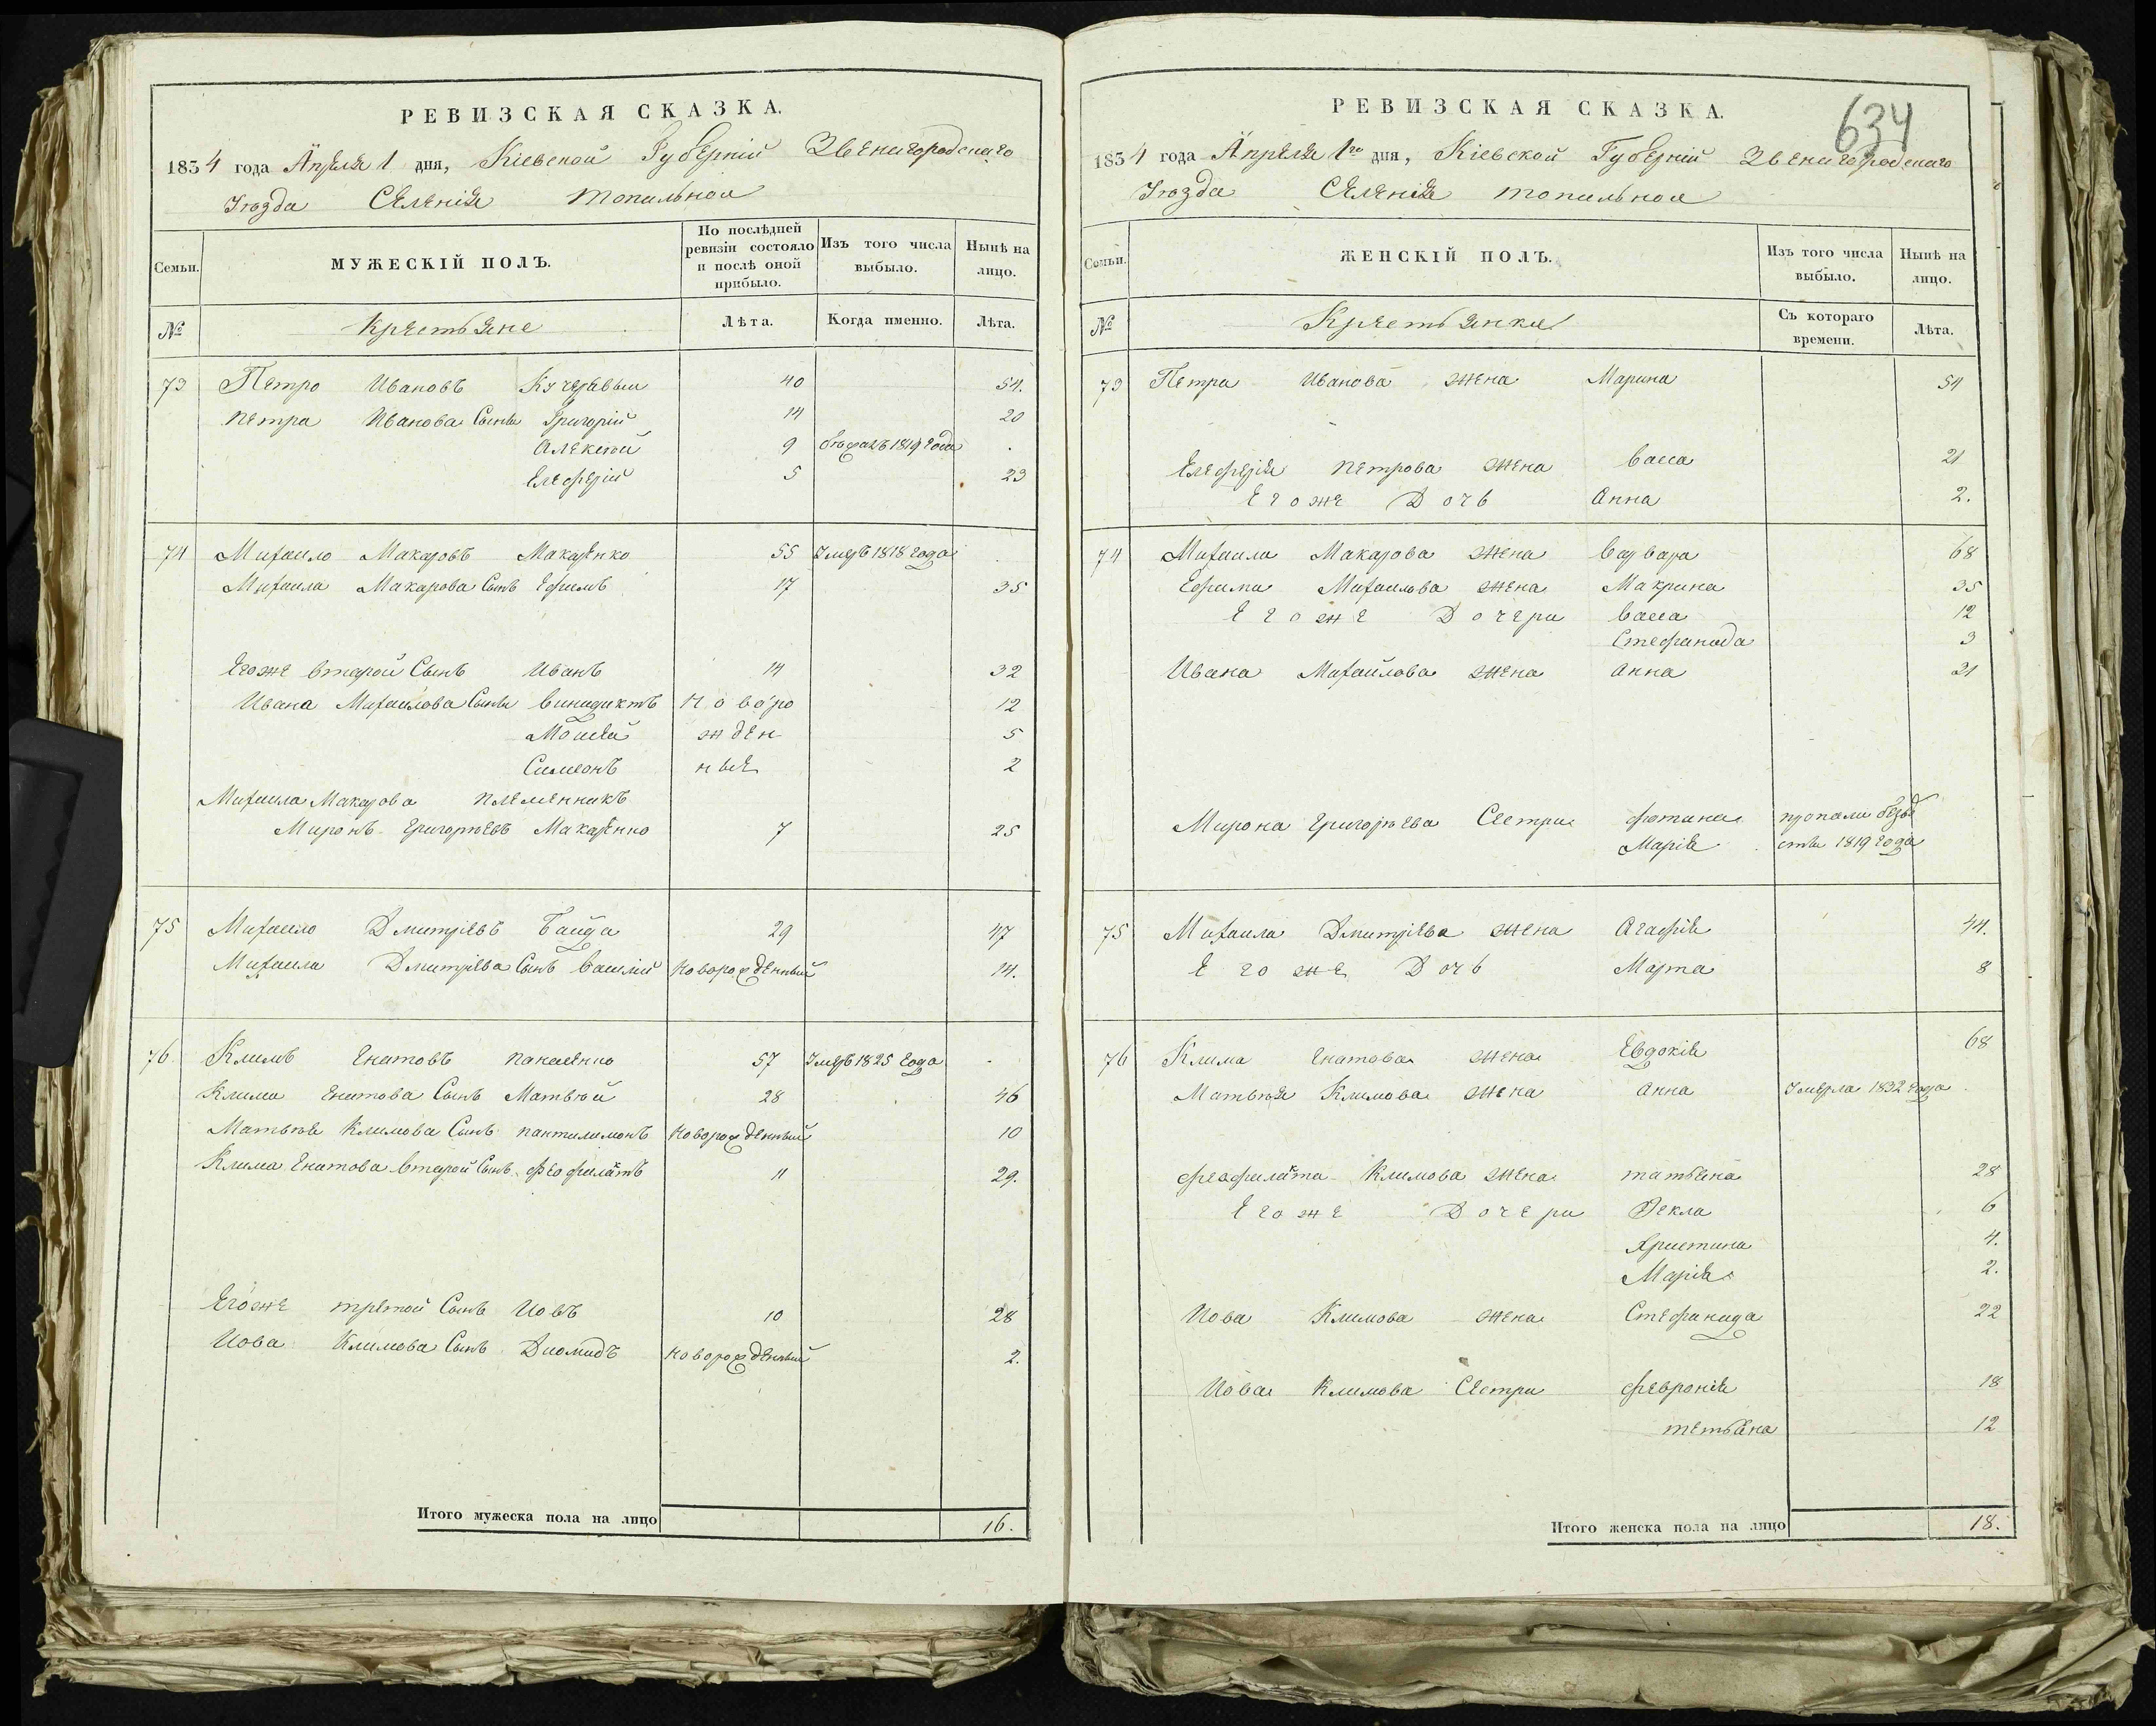 РЕВИЗСКАЯ СКАЗКА.
1834 года Апреля 1 дня, Кіевской Губерніи Звенигородскаго
Уѣзда Селенія Топильной
Семьи.
МУЖЕСКІЙ ПОЛЪ.
По послѣдней ревизіи состояло и послѣ оной прибыло.
Изъ того числа выбыло.
Нынѣ на лицо.
№ Крестьяне Лѣта. Когда именно. Лѣта.
73 Петро Ивановъ Кучерявыи 40 54.
Петра Иванова Сыны Григорій 14 20
Алексѣй 9 бѣжалъ 1819 года
Елеферій 5 23
74 Михаило Макаровъ Макаренко 55 Умеръ 1818 года
Михаила Макарова Сынъ Ефимъ 17 35
Егоже второй Сынъ Иванъ 14 32
Ивана Михаилова Сыны Винидиктъ Новоро 12
Мойсей жден 5
Симеонъ ные 2
Михаила Макарова племенникъ
Миронъ Григорѣевъ Макаренко 7 25
75 Михаило Дмитріевъ Байда 29 47
Михаила Дмитріева Сынъ Василій Новорожденный 14.
76 Климъ Енатовъ Панасенко 57 Умеръ 1825 года
Клима Енатова Сынъ Матвѣй 28 46
Матвѣя Климова Сынъ Пантилимонъ Новорожденный 10
Клима Енатова второй Сынъ Феофилактъ 11 29.
Егоже третой Сынъ Иовъ 10 28
Иова Климова Сынъ Диомидъ Новорожденный 2.
Итого мужеска пола на лицо 16.
634
РЕВИЗСКАЯ СКАЗКА.
1834 года Апреля 1го дня, Кіевской Губерніи Звенигородскаго
Уѣзда Селенія Топильной
Семьи.
ЖЕНСКІЙ ПОЛЪ.
Изъ того числа выбыло.
Нынѣ на лицо.
№ Крестьянки Съ котораго времени. Лѣта.
73 Петра Иванова жена Марина 54
Елеферія Петрова жена Васса 21
Егоже Дочь Анна 2.
74 Михаила Макарова жена Варвара 68
Ефима Михаилова жена Макрина 35
Егоже Дочери Васса 12
Стефанида 3
Ивана Михайлова жена Анна 31
Мирона Григорѣева Сестри Фотина пропали безвѣ
Марія сти 1819 года
75 Михаила Дмитріева жена Агафія 44.
Егоже Дочь Марта 8
76 Клима Енатова жена Евдокія 68
Матвѣя Климова жена Анна Умерла 1832 года
Феофилакта Климова жена татьяна 28
Егоже Дочери Фекла 6
Христина 4.
Марія 2.
Иова Климова жена Стефанида 22
Иова Климова Сестри Февронія 18
тетьяна 12
Итого женска пола на лицо 18.